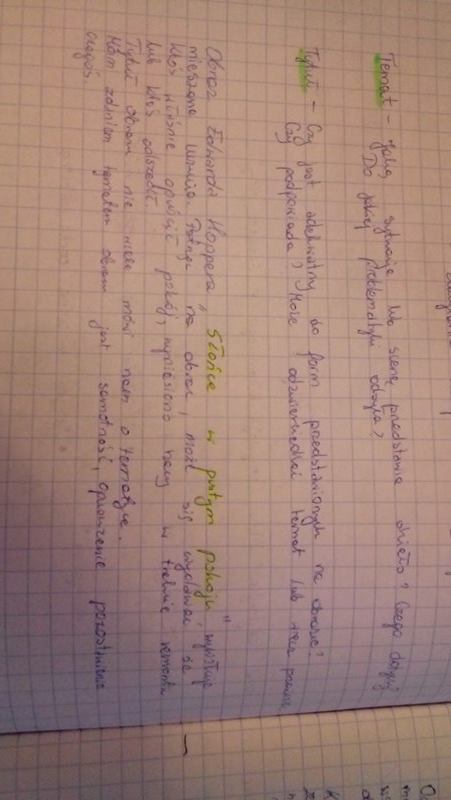 Temat - Jaką sytuację lub scenę przedstawia dzieło? Czego dotyczy?
Do jakiej problematyki odsyła?
Tytuł - Czy jest adekwatny do form przedstawionych na obrazie?
Czy podpowiada? Może odzwierciedlać temat lub
Obraz Edwarda Hoppera "Słońce w pustym pokoju" wywołuje
mieszane uczucia. Patrząc na obraz, może się wydawać że
ktoś właśnie opuścił pokój, wyniesiono w trakcie remontu
lub ktoś odszedł.
Tytuł obrazu nie wiele mówi nam o temacie.
Moim zdaniem tematem obrazu jest samotność, opuszczenie
czegoś.